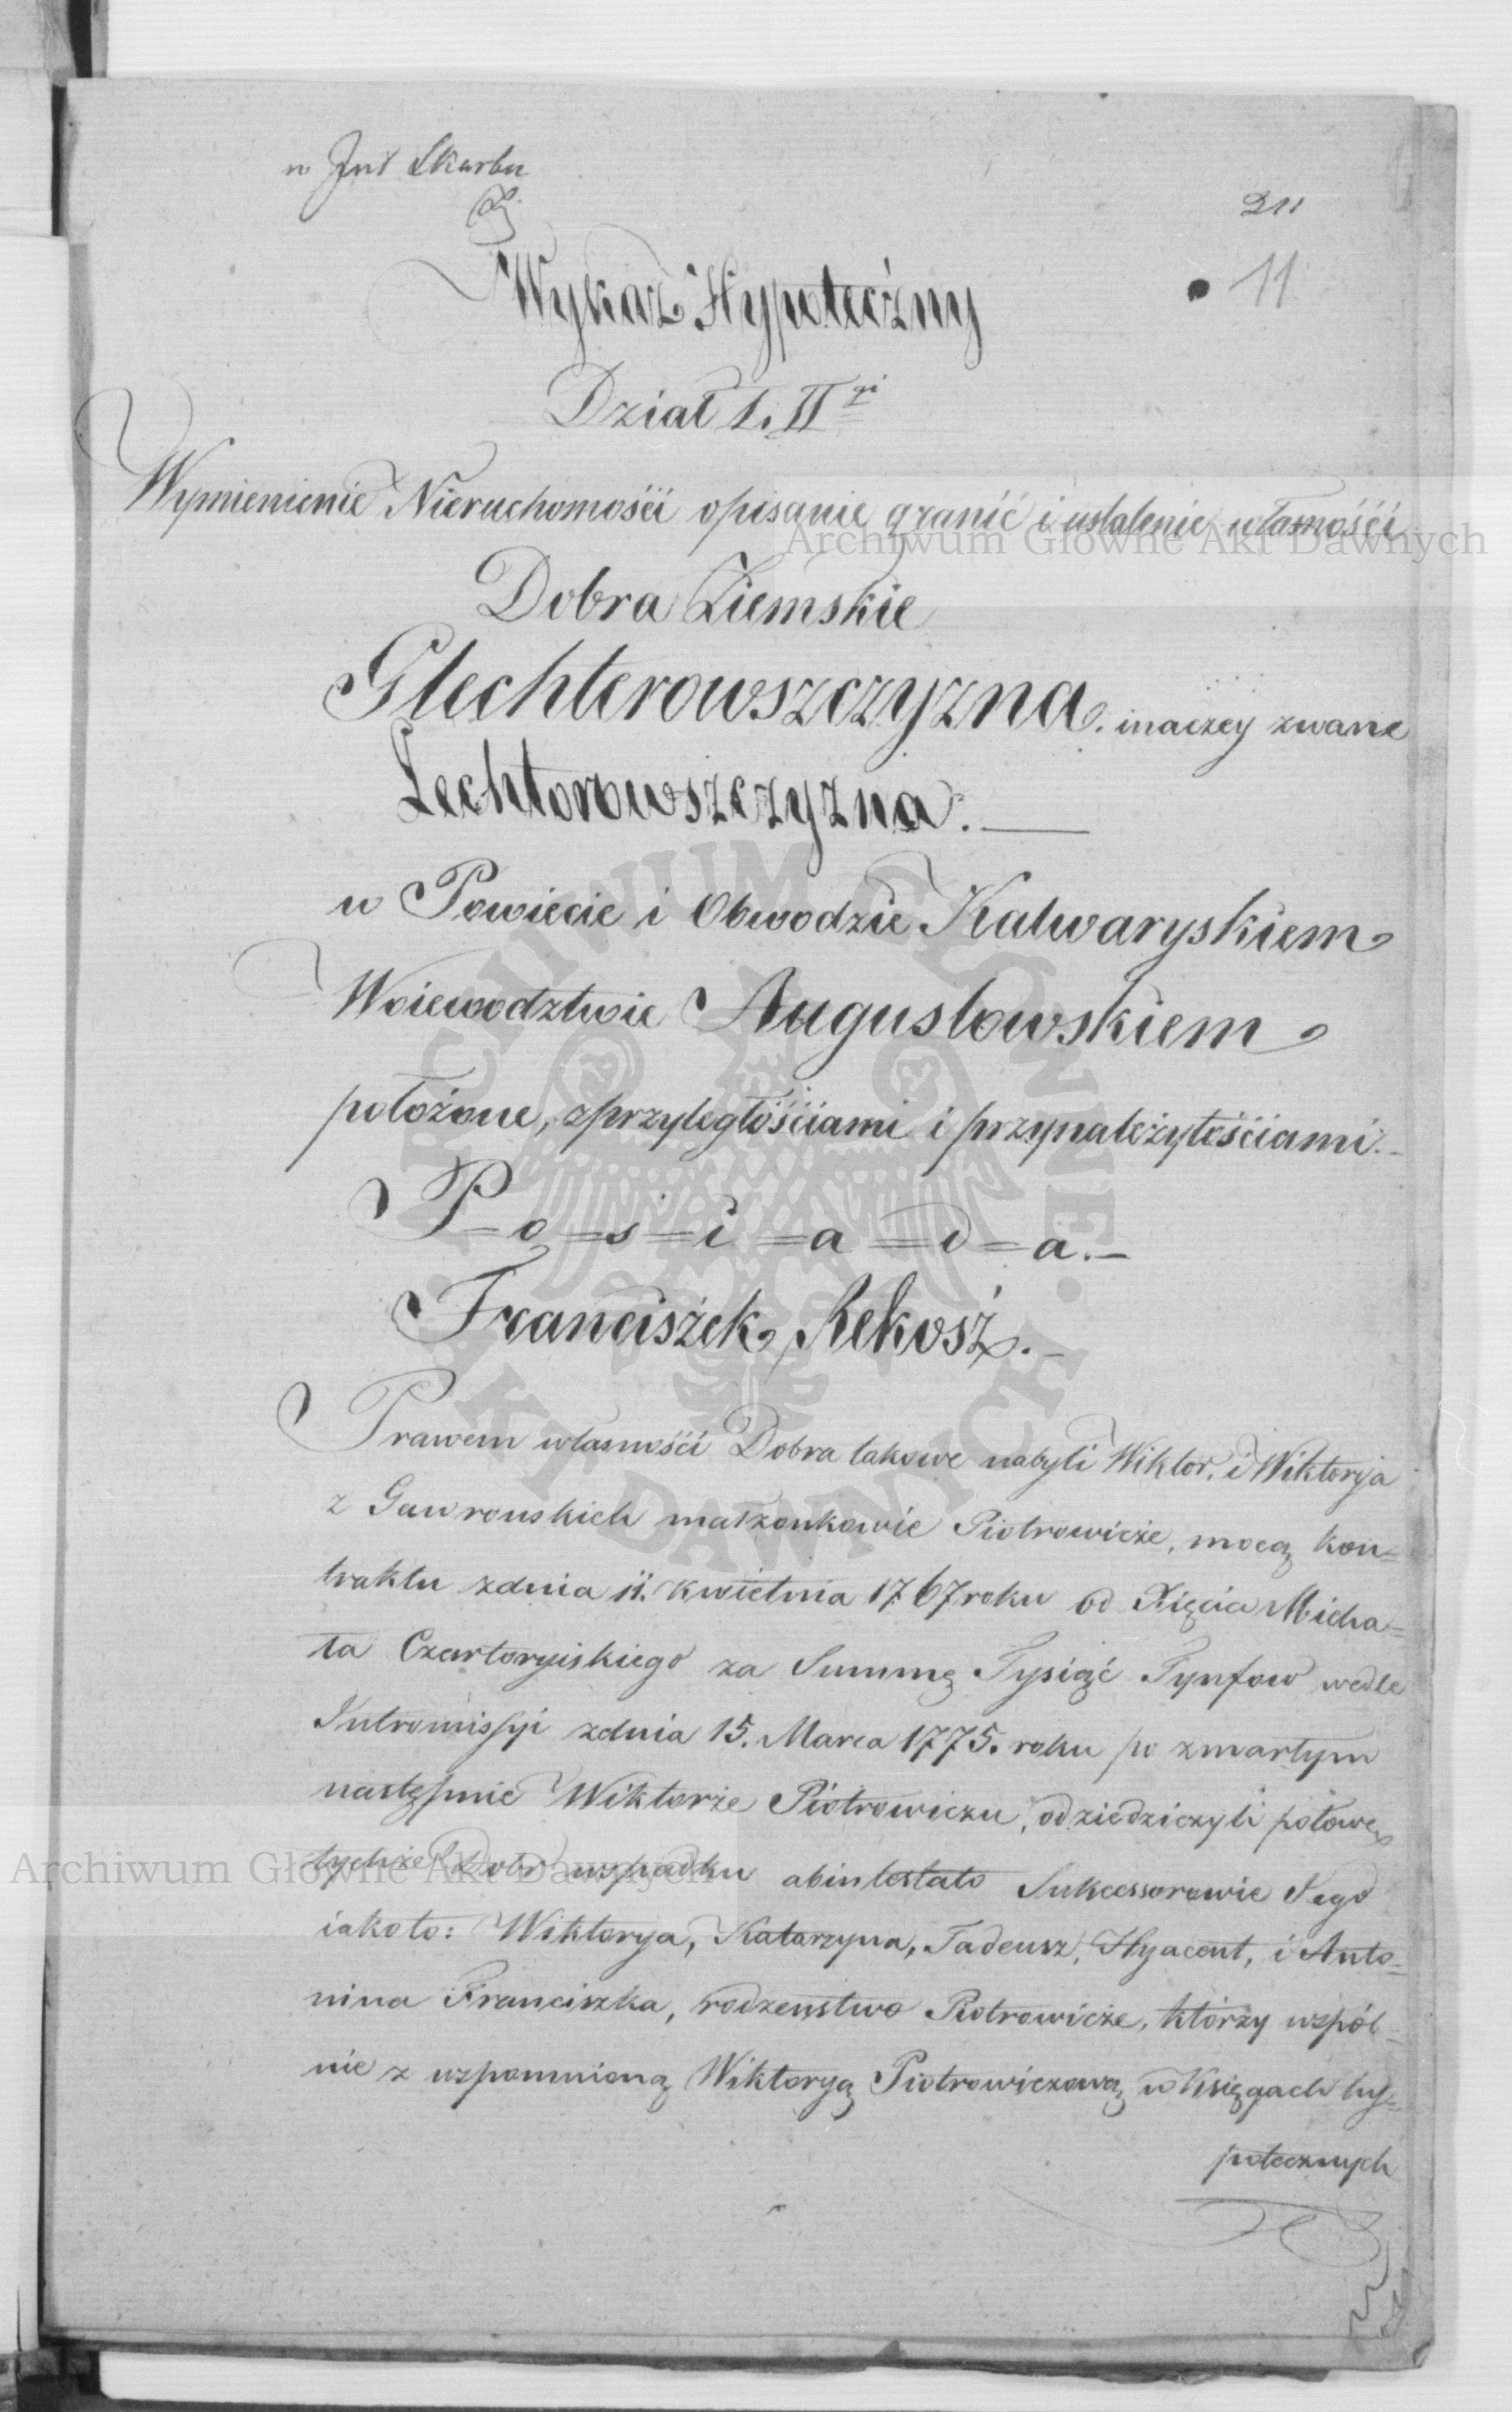 Skarbu
211
11
Wykaz Hypoteczny
Dział I. II<sup>gi</sup>
Wymienienie Nieruchomośći opisanie granić i ustalenie własnośći
Archiwum Główne Akt Dawnych
Dobra Ziemskie
Glechterowszczyzna inaczey zwane
Lechterowszczyzna.
w Powiecie i Obwodzie Kalwaryskiem
Woiewodztwie Augustowskiem
położone, z przyległośćiami i przynależytośćiami.
P=o=s=i=a=d=a.
Franciszek Rekosz.
Prawem własnośći Dobra takowe nabyli Wiktor, i Wiktorja
z Gawrouskich małżonkowie Piotrowicze, mocą kon=
traktu z dnia 11. kwietnia 1767 roku od Xięcia Micha=
ła Czartoryiskiego za Summę Tysiąć Tynfow wedle
Intromissyi z dnia 15. Marca 1775. roku po zmarłym
następnie Wiktorze Piotrowiczu, odziedziczyli połowę
tychże Dobr w spadku abintestato Sukcessorowie Jego
iako to: Wiktorya, Katarzyna, Tadeusz, Hyacent, i Anto=
nina Franciszka, rodzenstwo Piotrowicze, którzy wspól=
nie z wspomnioną Wiktoryą Piotrowiczową w Księgach hy=
potecznych
Archiwum Główne Akt Dawnych
ARCHIWUM GŁÓWNE AKT DAWNYCH